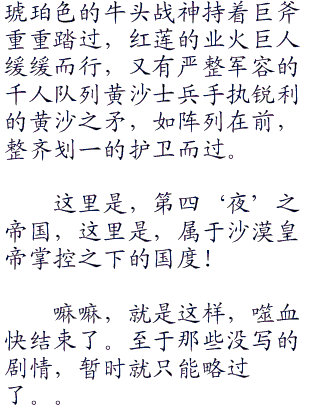 琥珀色的牛头战神持着巨斧
重重踏过，红莲的业火巨人
缓缓而行，又有严整军容的
千人队列黄沙士兵手执锐利
的黄沙之矛，如阵列在前，
整齐划一的护卫而过。
这里是，第四‘夜’之
帝国，这里是，属于沙漠皇
帝掌控之下的国度！
嘛嘛，就是这样，噬血
快结束了。至于那些没写的
剧情，暂时就只能略过
了。。